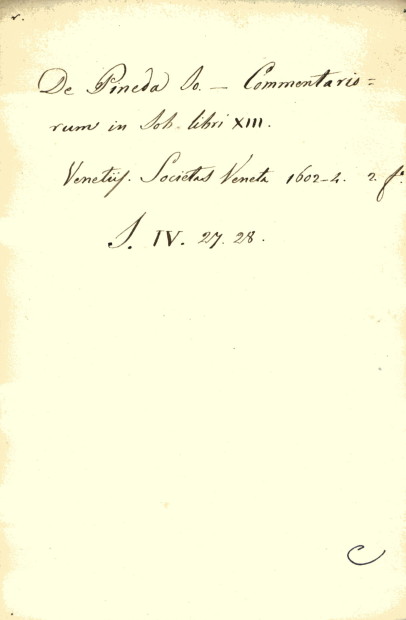 De Pineda Jo. — Commentario=
rum in Job libri XIII.
Venetijs. Societas Veneta 1602-4. 2 fo.
S. IV. 27. 28.
C